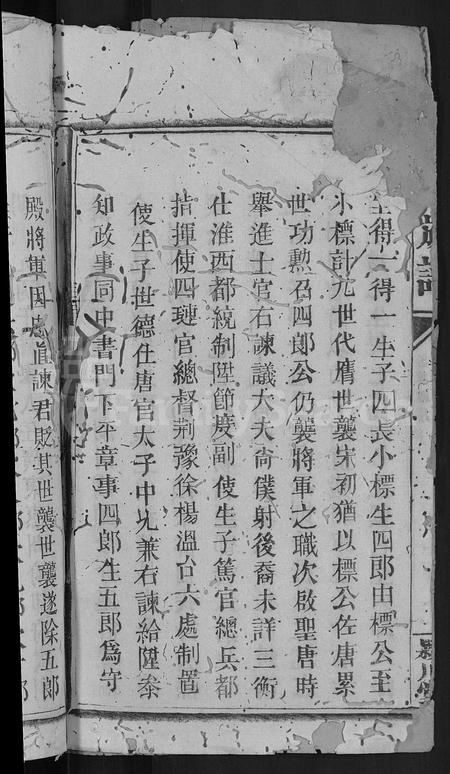 生得一得一生子四長小標生四郎由標公至
小標計九世代膺世襲宋初猶以標公佐唐累
世功勲召四郎公仍襲將軍之職次啟聖唐時
舉進士官右諫議大夫尚僕射後裔未詳三衡
仕淮西都統制陞節度副使生子篤官總兵都
指揮使四璉官總督荊豫徐楊溫台六處制置
使生子世德仕唐官太子中允兼右諫給陞叅
知政事同中書門下平章事四郎生五郎為守
殿將軍因忠直諫君貶其世襲世襲遂除五郎
潁川堂
FamilySearch